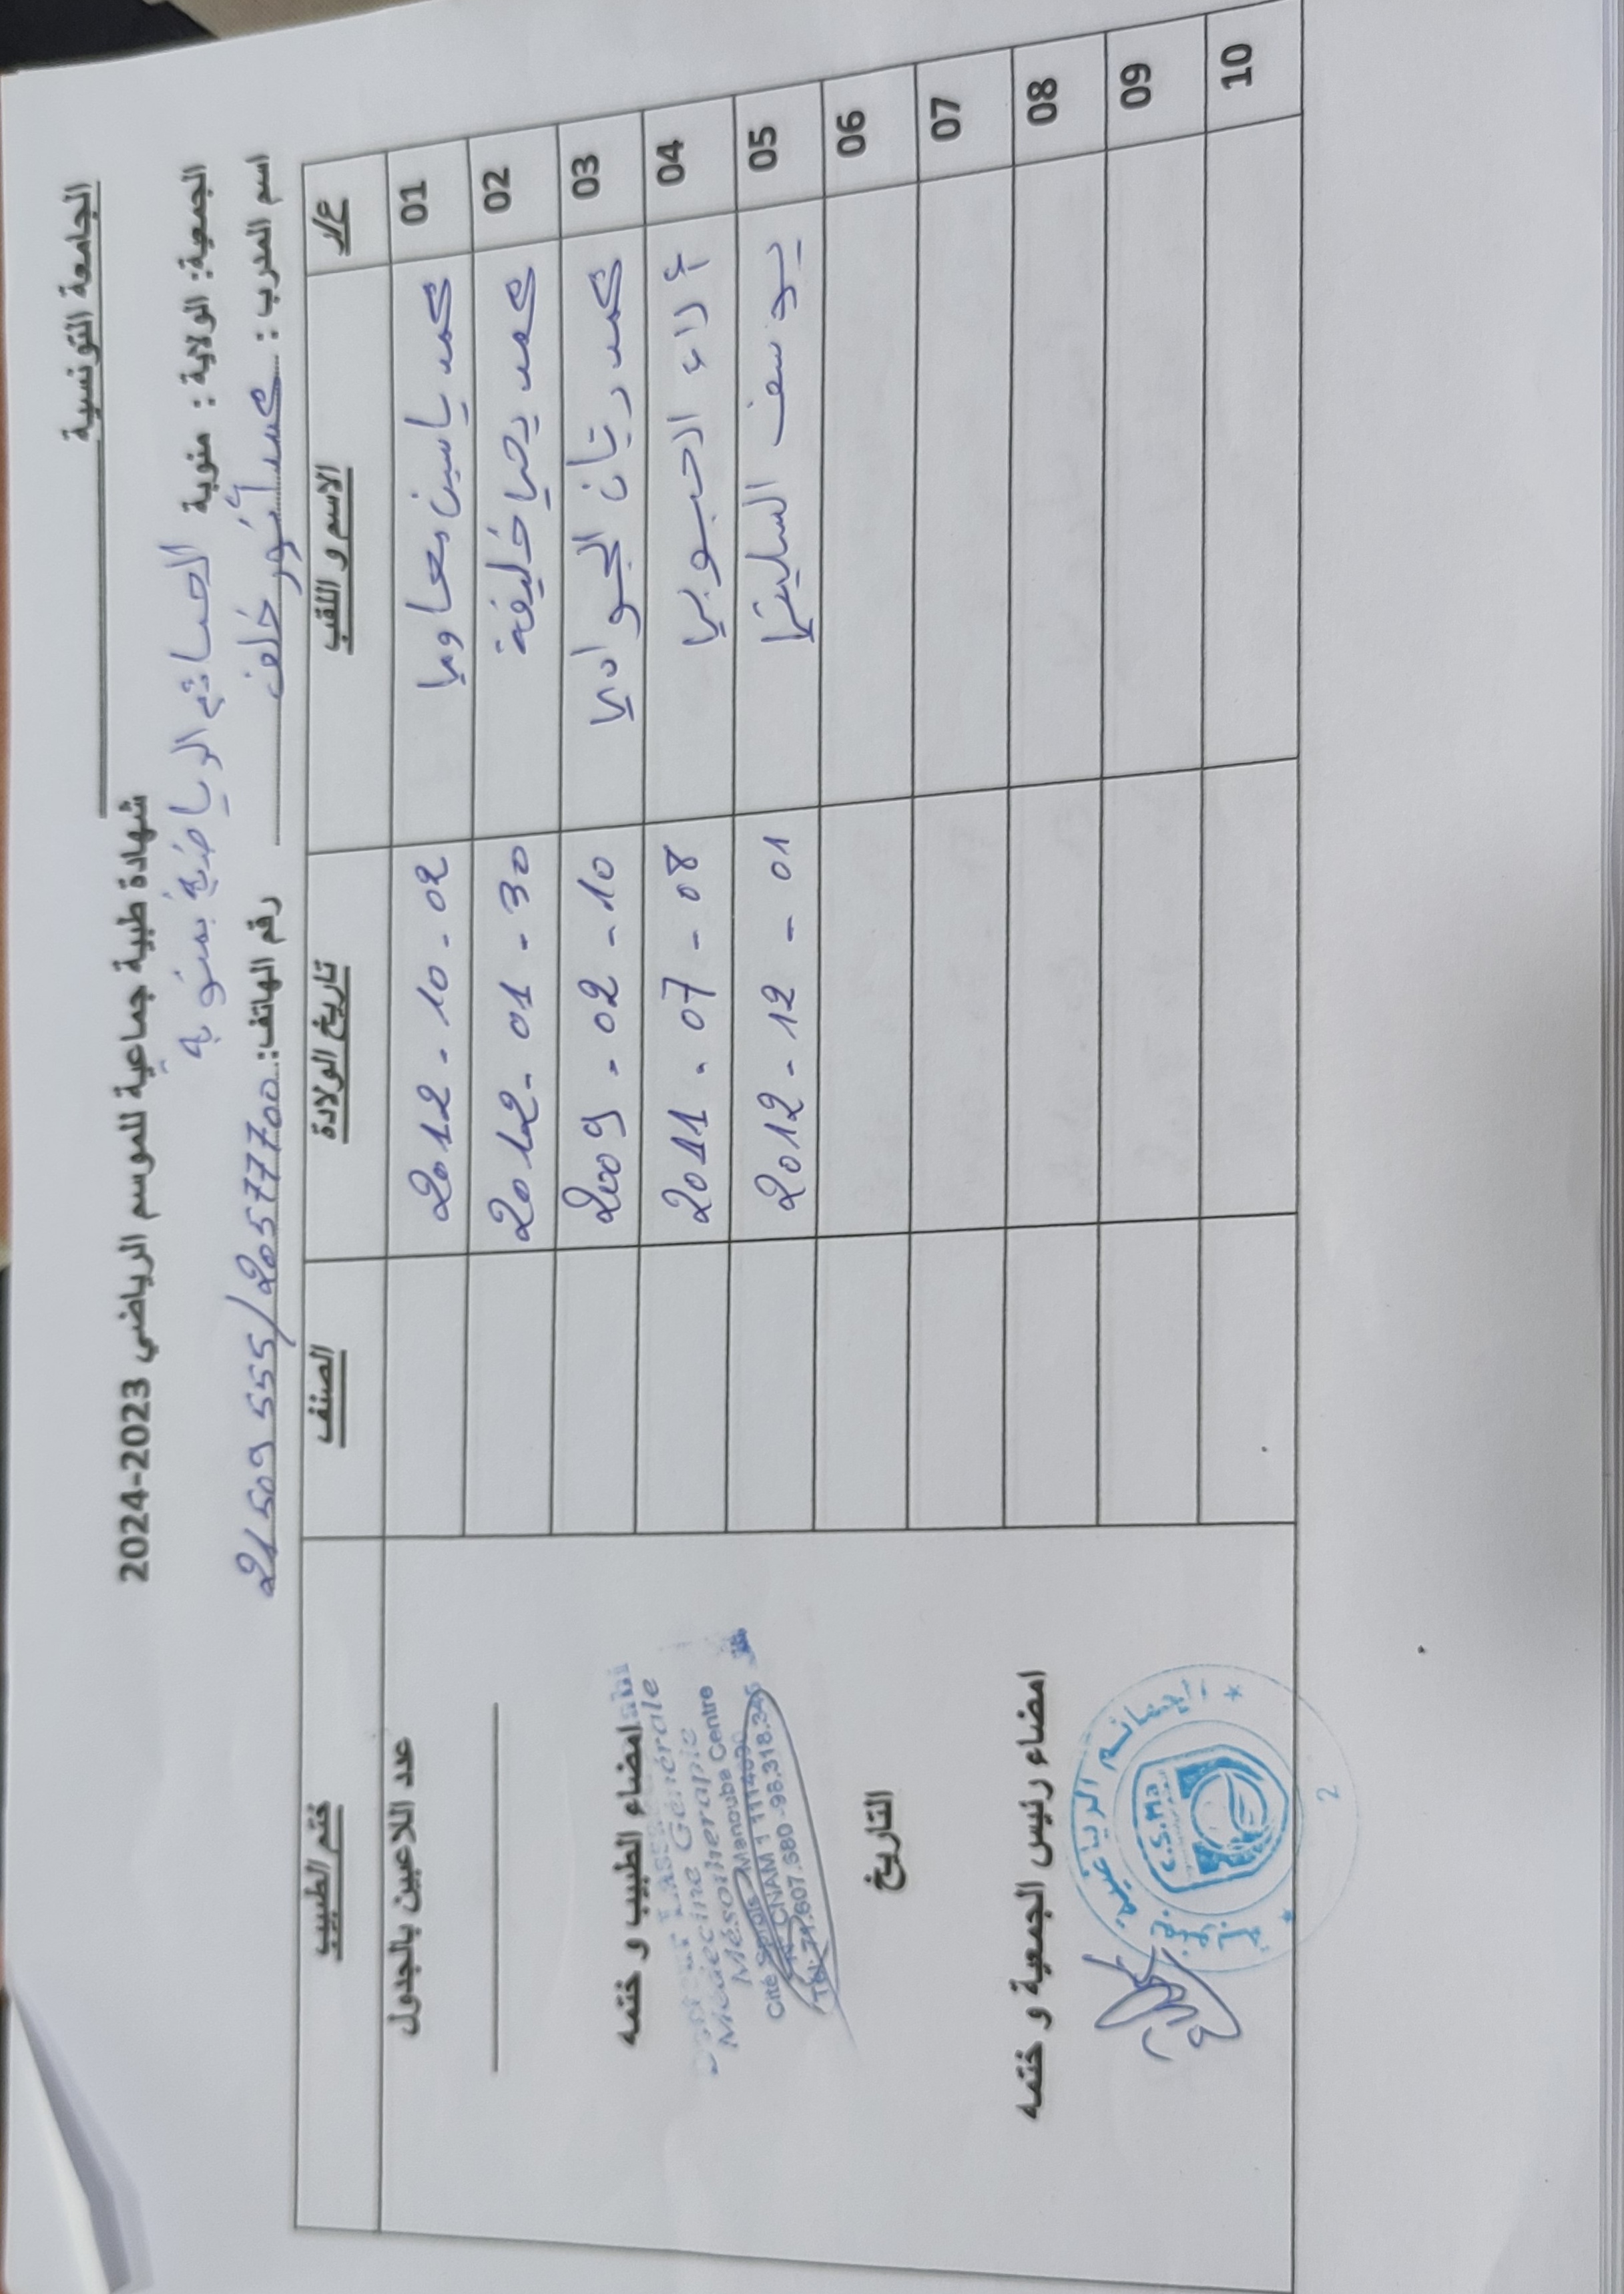 الجامعة التونسية
شهادة طبية جماعية للموسم الرياضي 2023-2024
الجمعية: الولاية : منوبة الحسائم الرياضية بمنوبة
اسم المدرب : محمد أنور خلف رقم الهاتف: 21509555/20577700
ع/ر الاسم و اللقب تاريخ الولادة الصنف ختم الطبيب
01 محمد ياسين معاوي 2012-10-02
02 محمد يحيا خليفة 2012-01-30
03 محمد ريان الجوادي 2009-02-10
04 ألاء الحبوبي 2011-07-08
05 يوسف السليتي 2012-12-01
06
07
08
09
10
عدد اللاعبين بالجدول
امضاء الطبيب و ختمه
Médecine Générale
Mésothérapie
Cité Manouba Centre
CNAM
Tél: 71.607.680 -98.318.345
التاريخ
امضاء رئيس الجمعية و ختمه
الرياضية
C.S.Ma
2